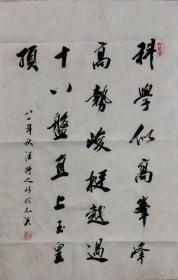 科學似高峯峰
高勢峻挺越過
十八盤直上玉皇
頂
八一年秋汪稼之作於無㵎